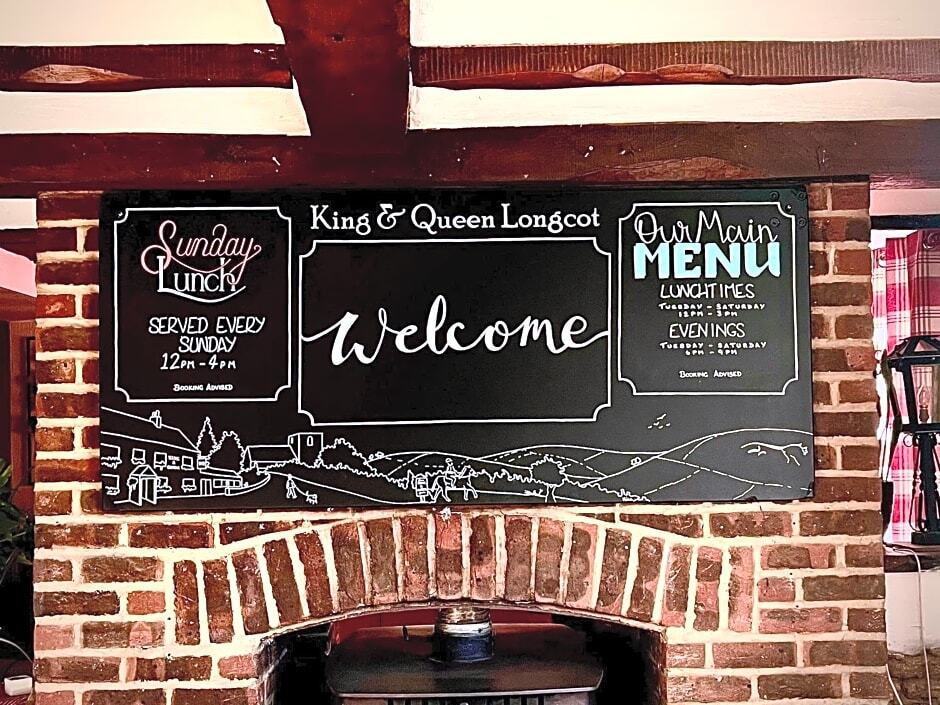 King & Queen Longcot
Sunday
Lunch
SERVED EVERY
SUNDAY
12PM - 4PM
BOOKING ADVISED
Welcome
Our Main
MENU
LUNCHTIMES
TUESDAY - SATURDAY
12PM - 3PM
EVENINGS
TUESDAY - SATURDAY
6PM - 9PM
BOOKING ADVISED